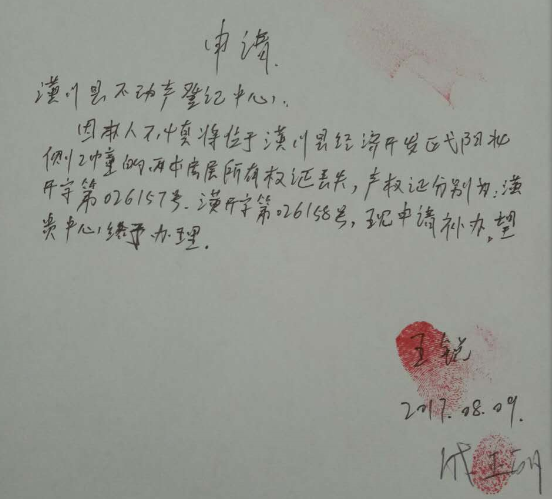 申请
潢川县不动产登记中心:
因本人不慎将位于潢川县经济开发区弋阳北
侧2幢的两本房屋所有权证丢失,产权证分别为:潢
开字第026157号、潢开字第026158号,现申请补办,望
贵中心给予办理。
王锐
2017.08.09.